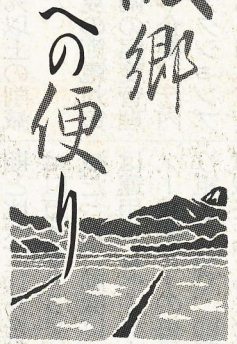 郷
への便り